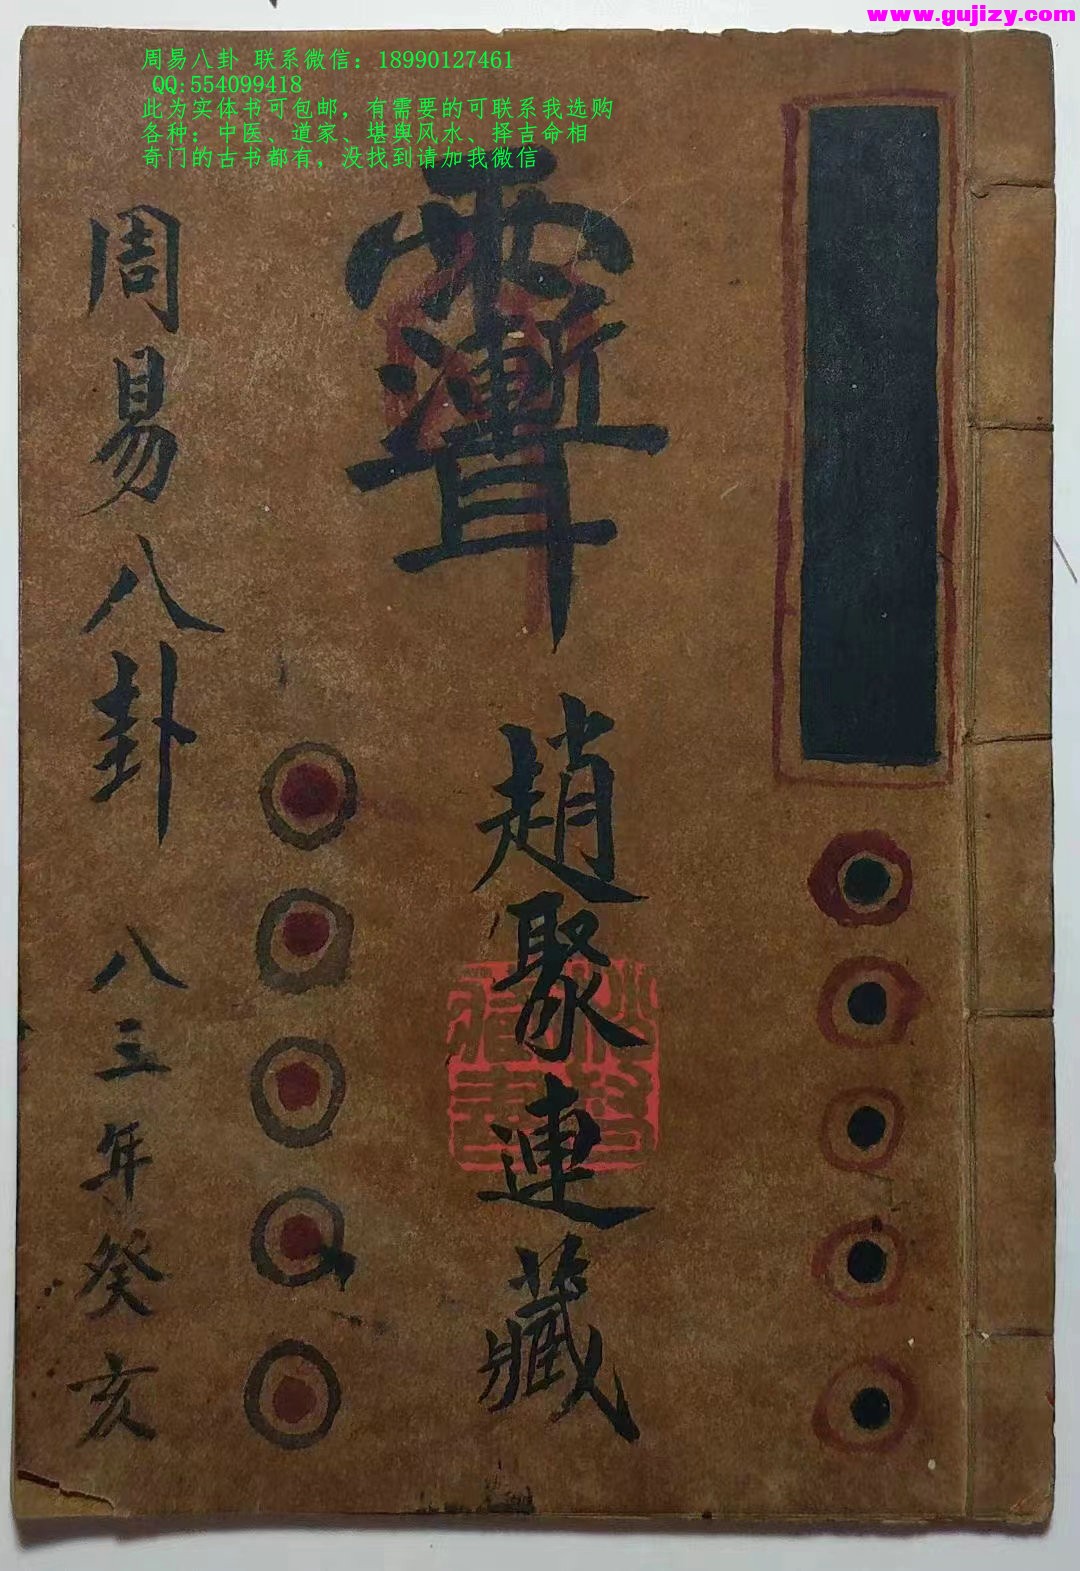 www.gujizy.com
周易八卦 联系微信：18990127461
QQ:554099418
此为实体书可包邮，有需要的可联系我选购
各种：中医、道家、堪舆风水、择吉命相
奇门的古书都有，没找到请加我微信
趙聚連藏
周易八卦
八三年癸亥